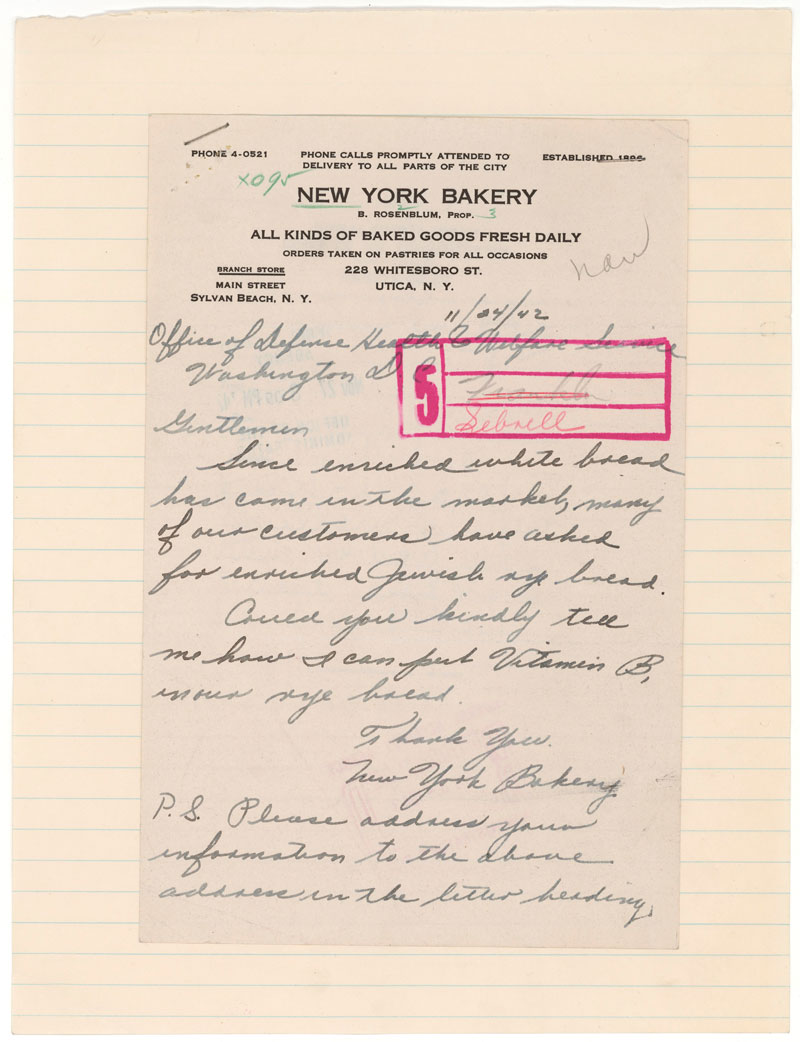 PHONE 4-0521
PHONE CALLS PROMPTLY ATTENDED TO
DELIVERY TO ALL PARTS OF THE CITY
ESTABLISHED 1896
X095
NEW YORK BAKERY
2
B. ROSENBLUM, PROP. 3
ALL KINDS OF BAKED GOODS FRESH DAILY
ORDERS TAKEN ON PASTRIES FOR ALL OCCASIONS
BRANCH STORE
MAIN STREET
SYLVAN BEACH, N. Y.
228 WHITESBORO ST.
UTICA, N. Y.
11/24/42
Office of Defense Health & Welfare Service
Washington D C
5
Sebrell
Gentlemen
Since enriched white bread
has come in the market, many
of our customers have asked
for enriched Jewish rye bread.
Could you kindly tell
me how I can put Vitamin B,
in our rye bread.
Thank You.
New York Bakery
P. S. Please address your
information to the above
address in the letter heading.